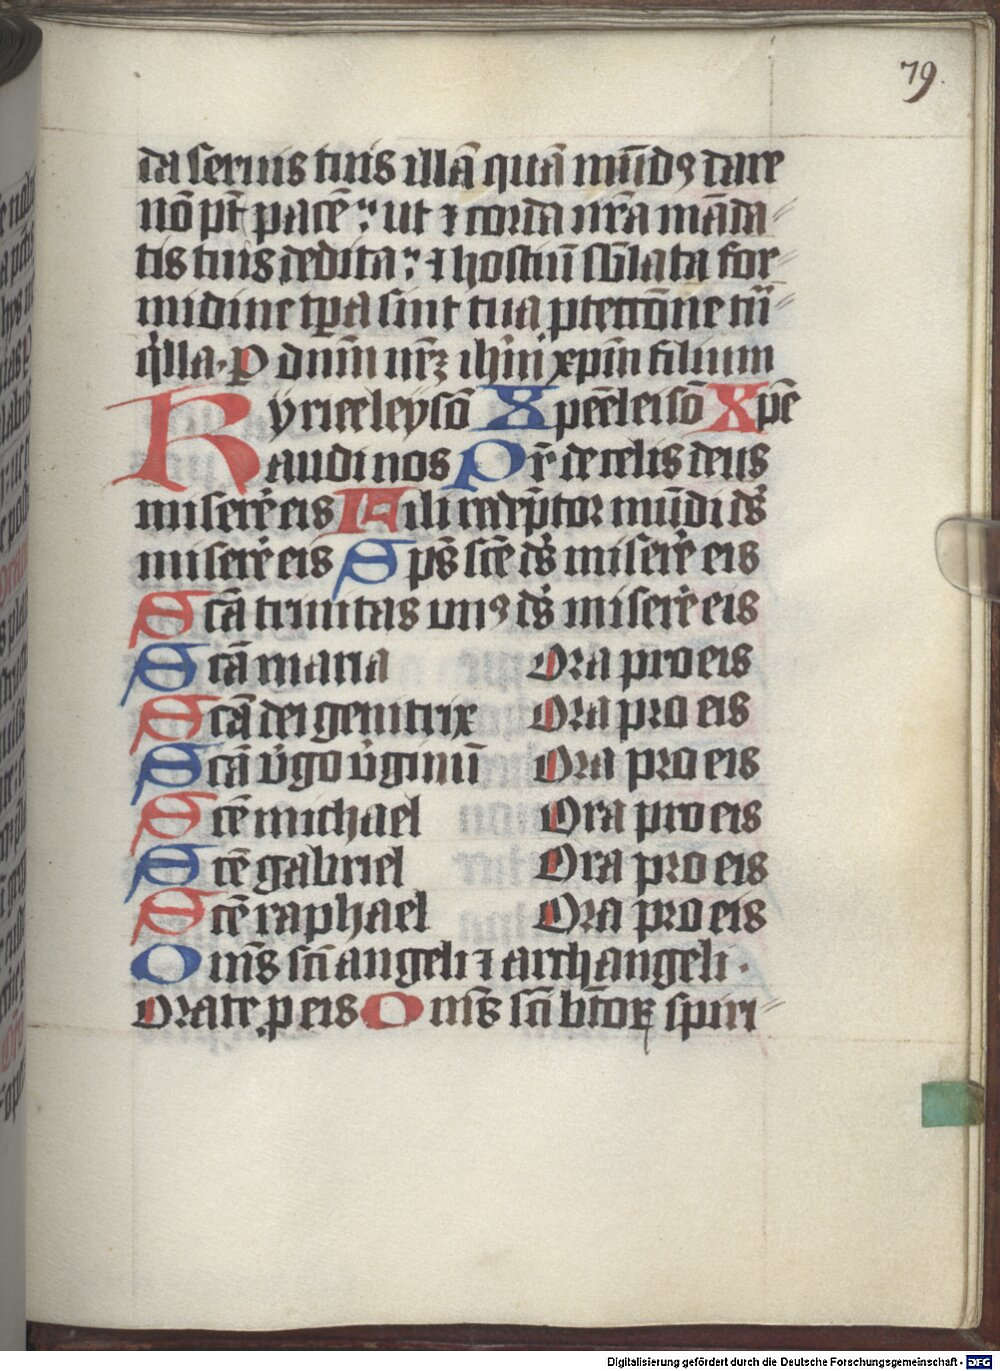 79.
da seruis tuis illā quā mūdꝯ dare
nō pt̄ pacē : ut ⁊ corda nr̄a māda⸗
tis tuis dedita : ⁊ hostiū sb̄lata for⸗
midine tp̄a sint tua ꝓtectōne tū⸗
q̄lla. P dn̄m nr̄ꝫ ih̄m xp̄m filium
Kyrieeleysō Xpēeleisō Xpē
audi nos Pr̄ de celis deus
miserē eis Fili redēptor mūdi ds̄
miserē eis Sps̄ scē ds̄ miserē eis
Scā trinitas unꝯ ds̄ miserē eis
Scā maria Ora pro eis
Scā dei genitrix Ora pro eis
Scā v̄go v̄ginū Ora pro eis
Scē michael Ora pro eis
Scē gabriel Ora pro eis
Scē raphael Ora pro eis
Oms̄ scī angeli ⁊ archangeli .
Orate ꝓ eis Oms̄ scī btōꝝ spiri⸗
Digitalisierung gefördert durch die Deutsche Forschungsgemeinschaft - DFG